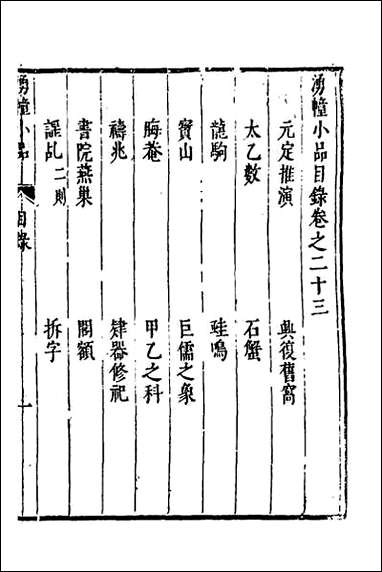 湧幢小品目錄卷之二十三
元定推演 興復舊窩
太乙數 石蟹
龍駒 蛙鳴
寶山 巨儒之象
晦菴 甲乙之科
禱兆 肄器修祀
書院燕巢 閣額
誣乩二則 拆字
湧幢小品 目錄 一